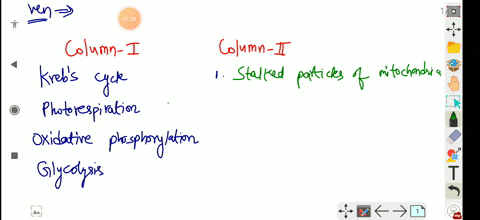 ven ⇒
Column-I Column-II
Kreb's cycle 1. Stalked particles of mitochondria
Photorespiration
Oxidative phosphorylation
Glycolysis